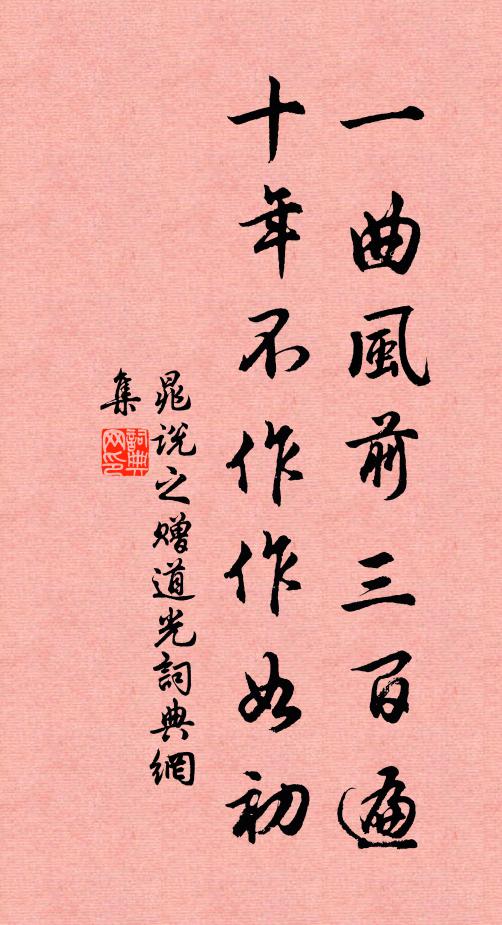 一曲風前三百遍
十年不作作如初
晁說之贈道光詞典網
集
詞典網印